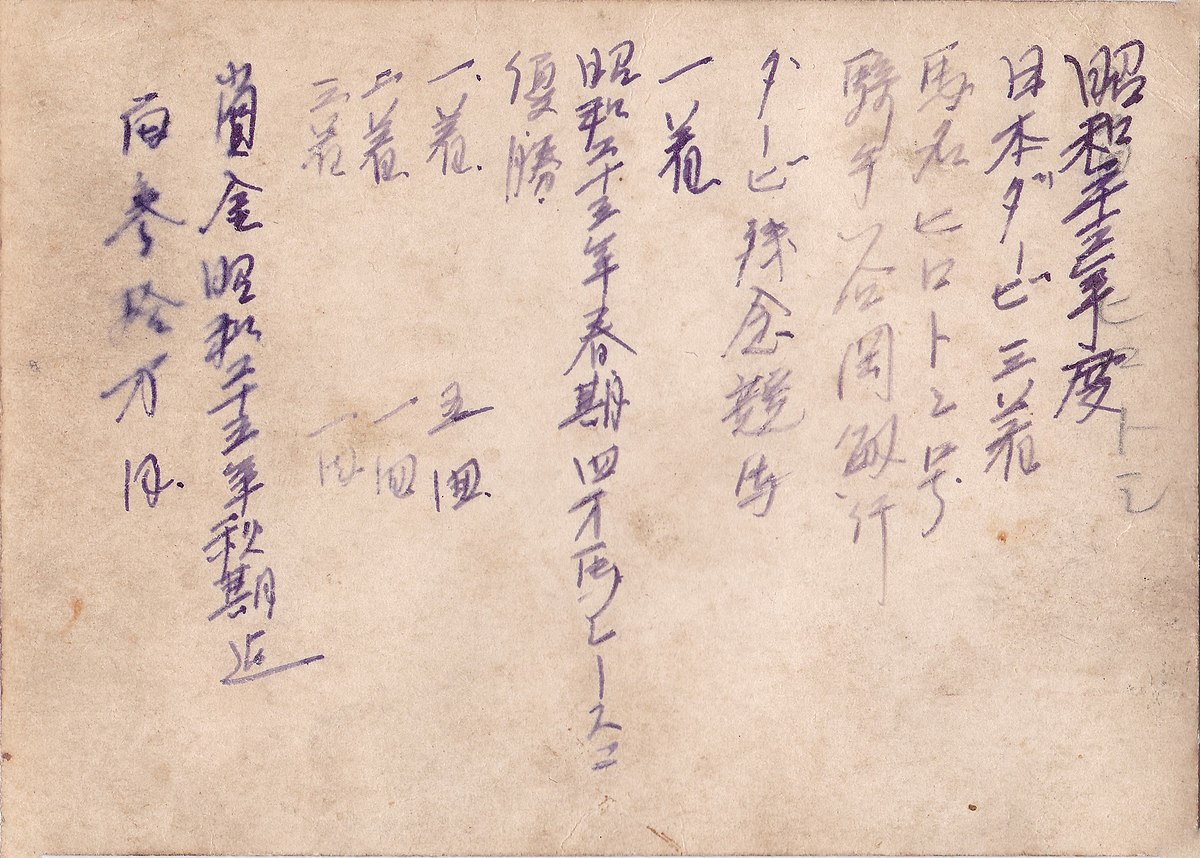 昭和二十三年度
日本ダービ三着
馬名ヒロトミ号
騎手 谷岡敏行
ダービ残念競馬
一着
昭和二十五年春期四才馬レースニ
優勝
一着 五回
二着 一回
三着 一回
賞金昭和二十五年秋期迄
百参拾万円
ヒロトミ